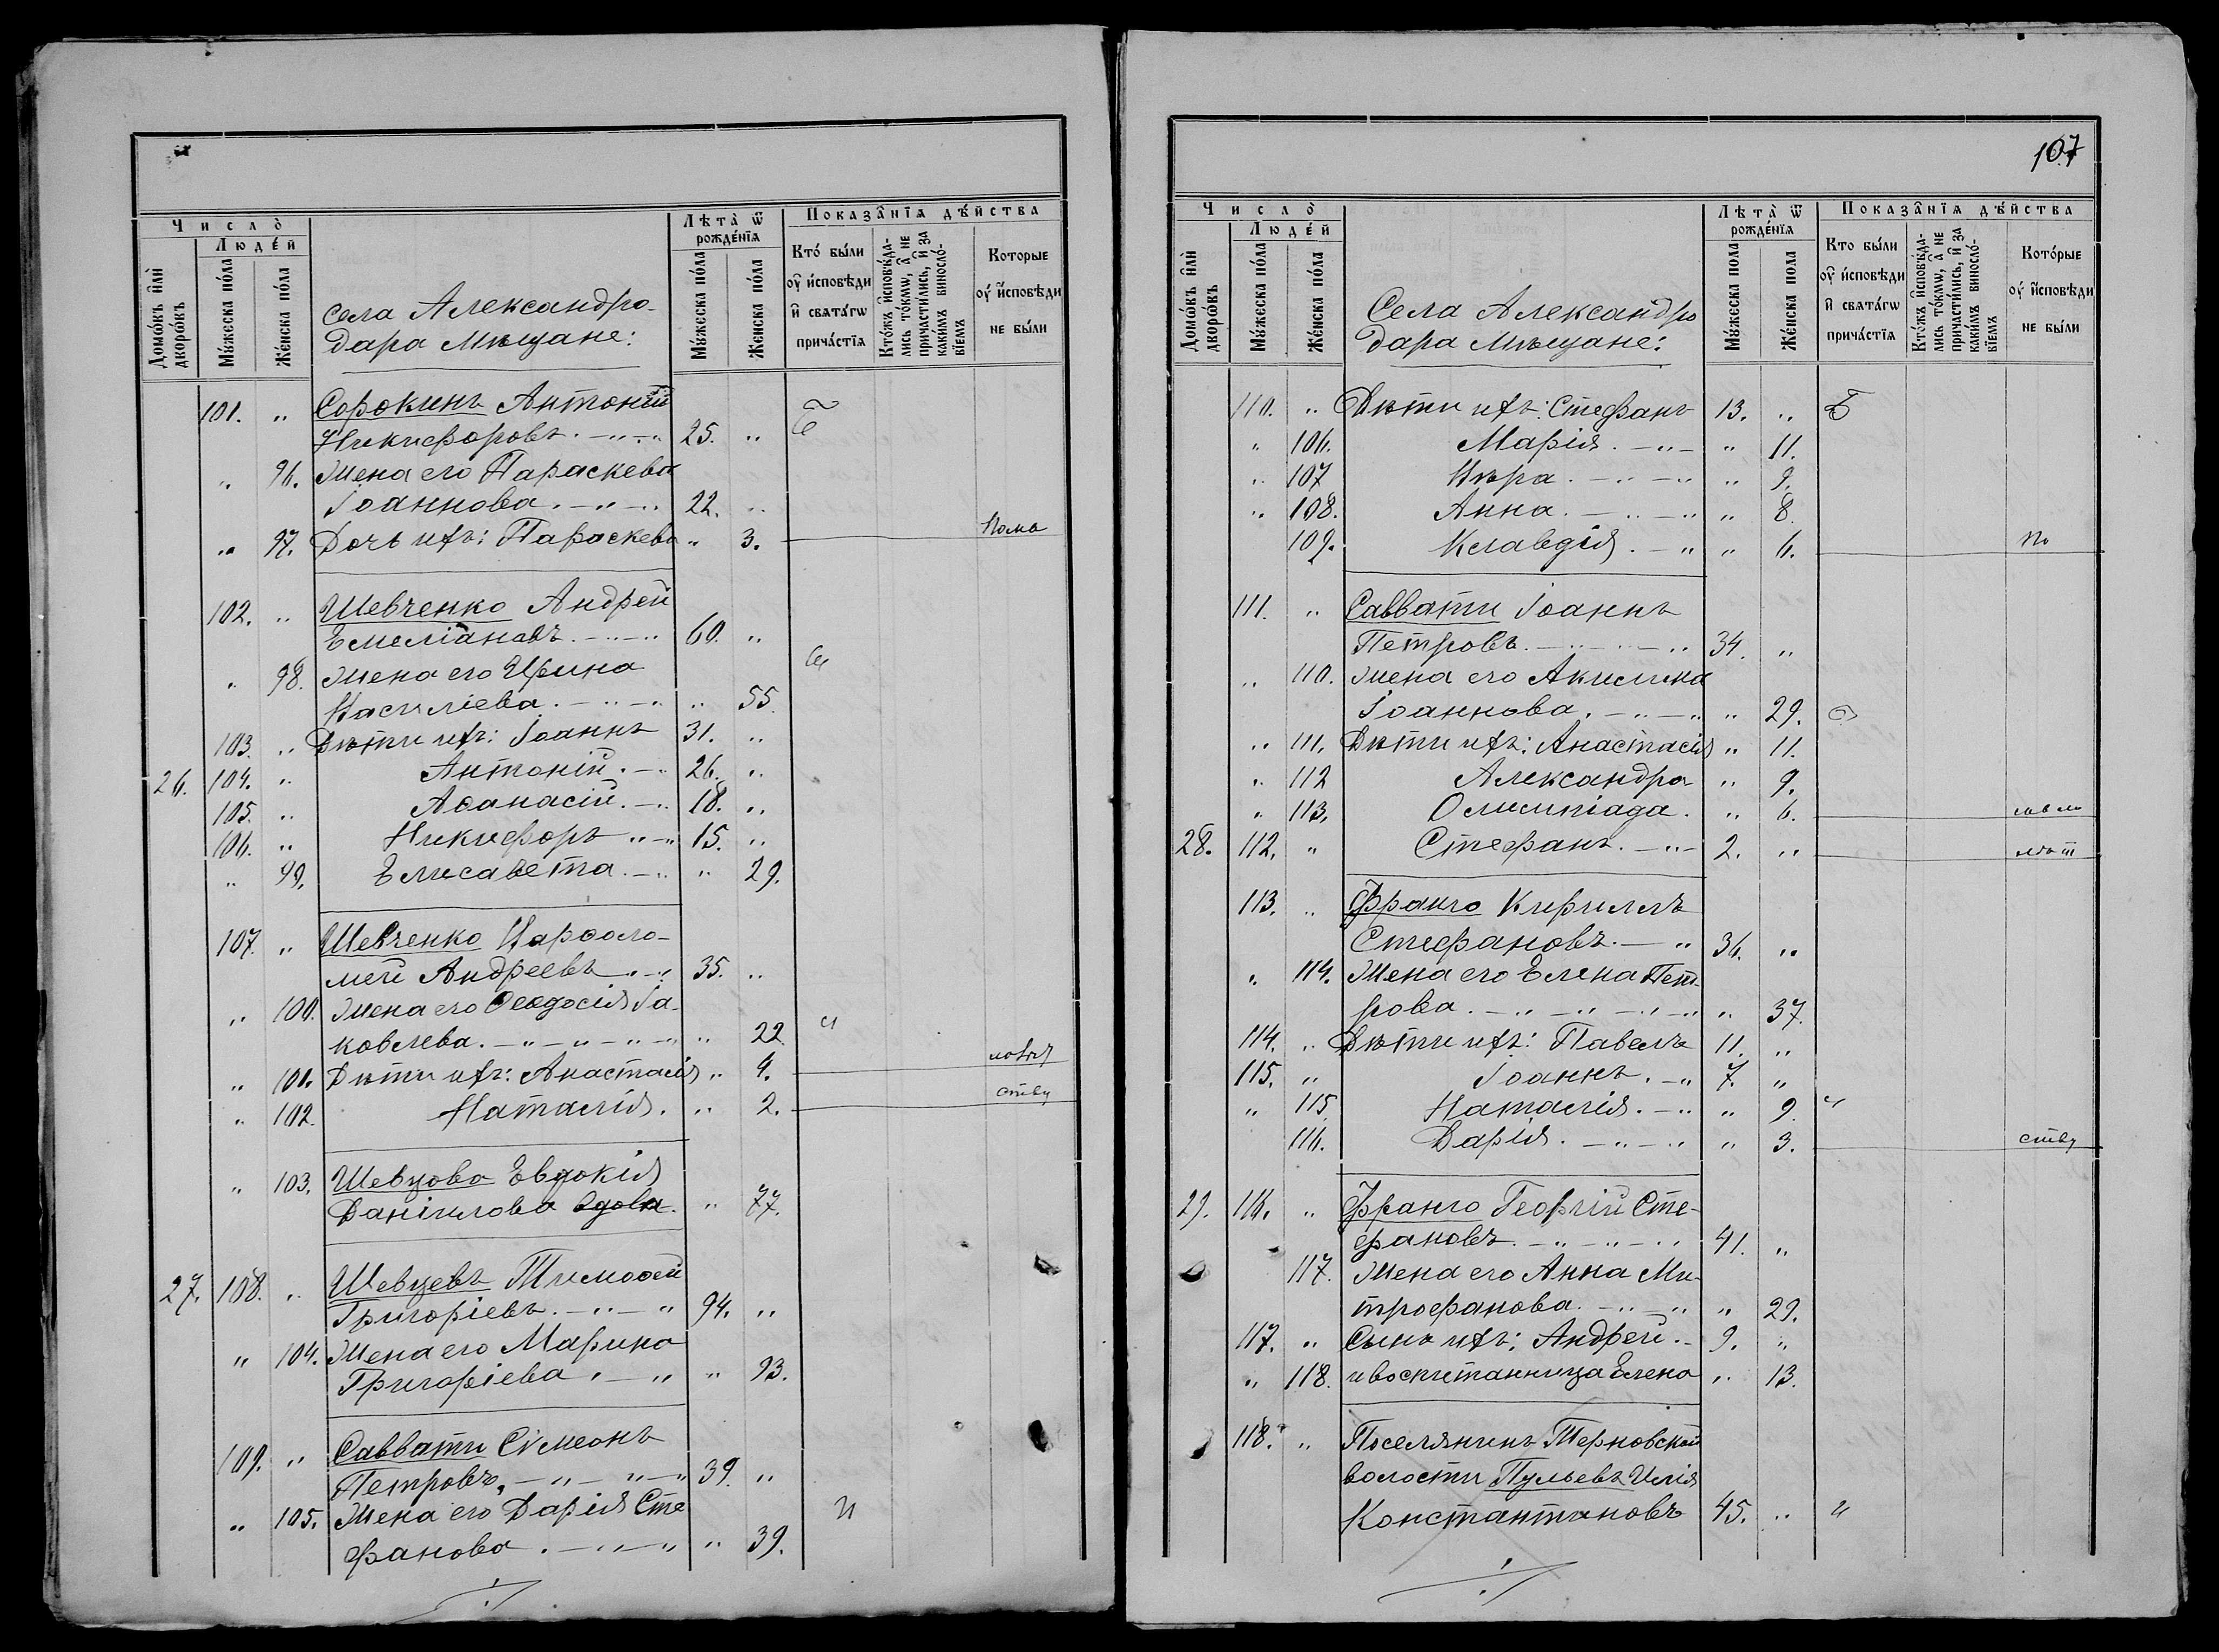 Число̀
Домо́къ и҆лѝ дворо́въ
Люде́й
Мꙋ́жеска по́ла
Же́нска по́ла
Лѣта̀ ѿ рожде́нїѧ
Мꙋ́жеска по́ла
Же́нска по́ла
Показа̑нїѧ дѣ́йства
Кто́ бы́ли ᲂу҆ и҆сповѣ́ди и҆ свѧта́гѡ прича́стїѧ
Кто́жъ и҆сповѣ́дались то́кмѡ, а҆ не причасти́лись, и҆ за каки́мъ виносло́вїемъ
Кото́рые ᲂу҆ и҆сповѣ́ди не бы́ли
села Александро-
дара Мѣщане:
101. „ Сорокинъ Антоній
Никифоровъ. 25. „
„ 96. Жена его Параскева
Іоаннова. 22. „
„ 97. Дочь ихъ: Параскева „ 3. Пома
102. „ Шевченко Андрей
Емеліановъ. 60. „
„ 98. Жена его Ирина
Василіева. „ 55.
103. „ Дѣти ихъ: Іоаннъ 31. „
26. 104. „ Антоній. 26. „
105. „ Аѳанасій. 18. „
106. „ Никифоръ 15. „
„ 99. Елисавета. „ 29.
107. „ Шевченко Варѳоло-
мей Андреевъ 35. „
„ 100. Жена его Ѳеодосія Іа-
ковлева. „ 22
„ 101. Дѣти ихъ: Анастасія „ 4.
„ 102. Наталія. „ 2. ству
„ 103. Шевцова Евдокія
Даніилова вдова. „ 77.
27. 108. „ Шевцевъ Тимоѳей
Григоріевъ. 94. „
„ 104. Жена его Марина
Григоріева. „ 93.
109. „ Савватии Сѵмеонъ
Петровъ. 39. „
„ 105. Жена его Дарія Сте
фанова. „ 39.
107
Число̀
Домо́къ и҆лѝ дворо́въ
Люде́й
Мꙋ́жеска по́ла
Же́нска по́ла
Лѣта̀ ѿ рожде́нїѧ
Мꙋ́жеска по́ла
Же́нска по́ла
Показа̑нїѧ дѣ́йства
Кто бы́ли ᲂу҆ и҆сповѣ́ди и҆ свѧта́гѡ прича́стїѧ
Кто́жъ и҆сповѣ́дались то́кмѡ, а҆ не причасти́лись, и҆ за каки́мъ виносло́вїемъ
Кото́рые ᲂу҆ и҆сповѣ́ди не бы́ли
Села Александро
дара Мѣщане:
110. „ Дѣти ихъ: Стефанъ 13. „ Б
„ 106. Марія. „ 11.
„ 107 Вѣра. „ 9.
„ 108. Анна. „ 8.
109. Клавдія. „ 6. по
111. „ Савватии Іоаннъ
Петровъ. 34. „
„ 110. Жена его Акилина
Іоаннова. „ 29.
„ 111. Дѣти ихъ: Анастасія „ 11.
„ 112 Александра „ 9.
„ 113. Олимпіада. „ 6.
28. 112. „ Стефанъ. 2. „
113. „ Франго Кириллъ
Стефановъ. 36. „
„ 114. Жена его Елена Пет-
рова. „ 37.
114. „ Дѣти ихъ: Павелъ 11. „
115. „ Іоаннъ. 7. „
„ 115. Наталія. „ 9.
116. Дарія. „ 3. ству
29. 116. „ Франго Георгій Сте-
фановъ. 41. „
117. Жена его Анна Ми-
трофанова. „ 29.
117. „ Сынъ ихъ: Андрей. 9. „
„ 118. и воспитанница Елена „ 13.
118. „ Поселянинъ Терновской
волости Пульевъ Илія
Константиновъ 45. „ и